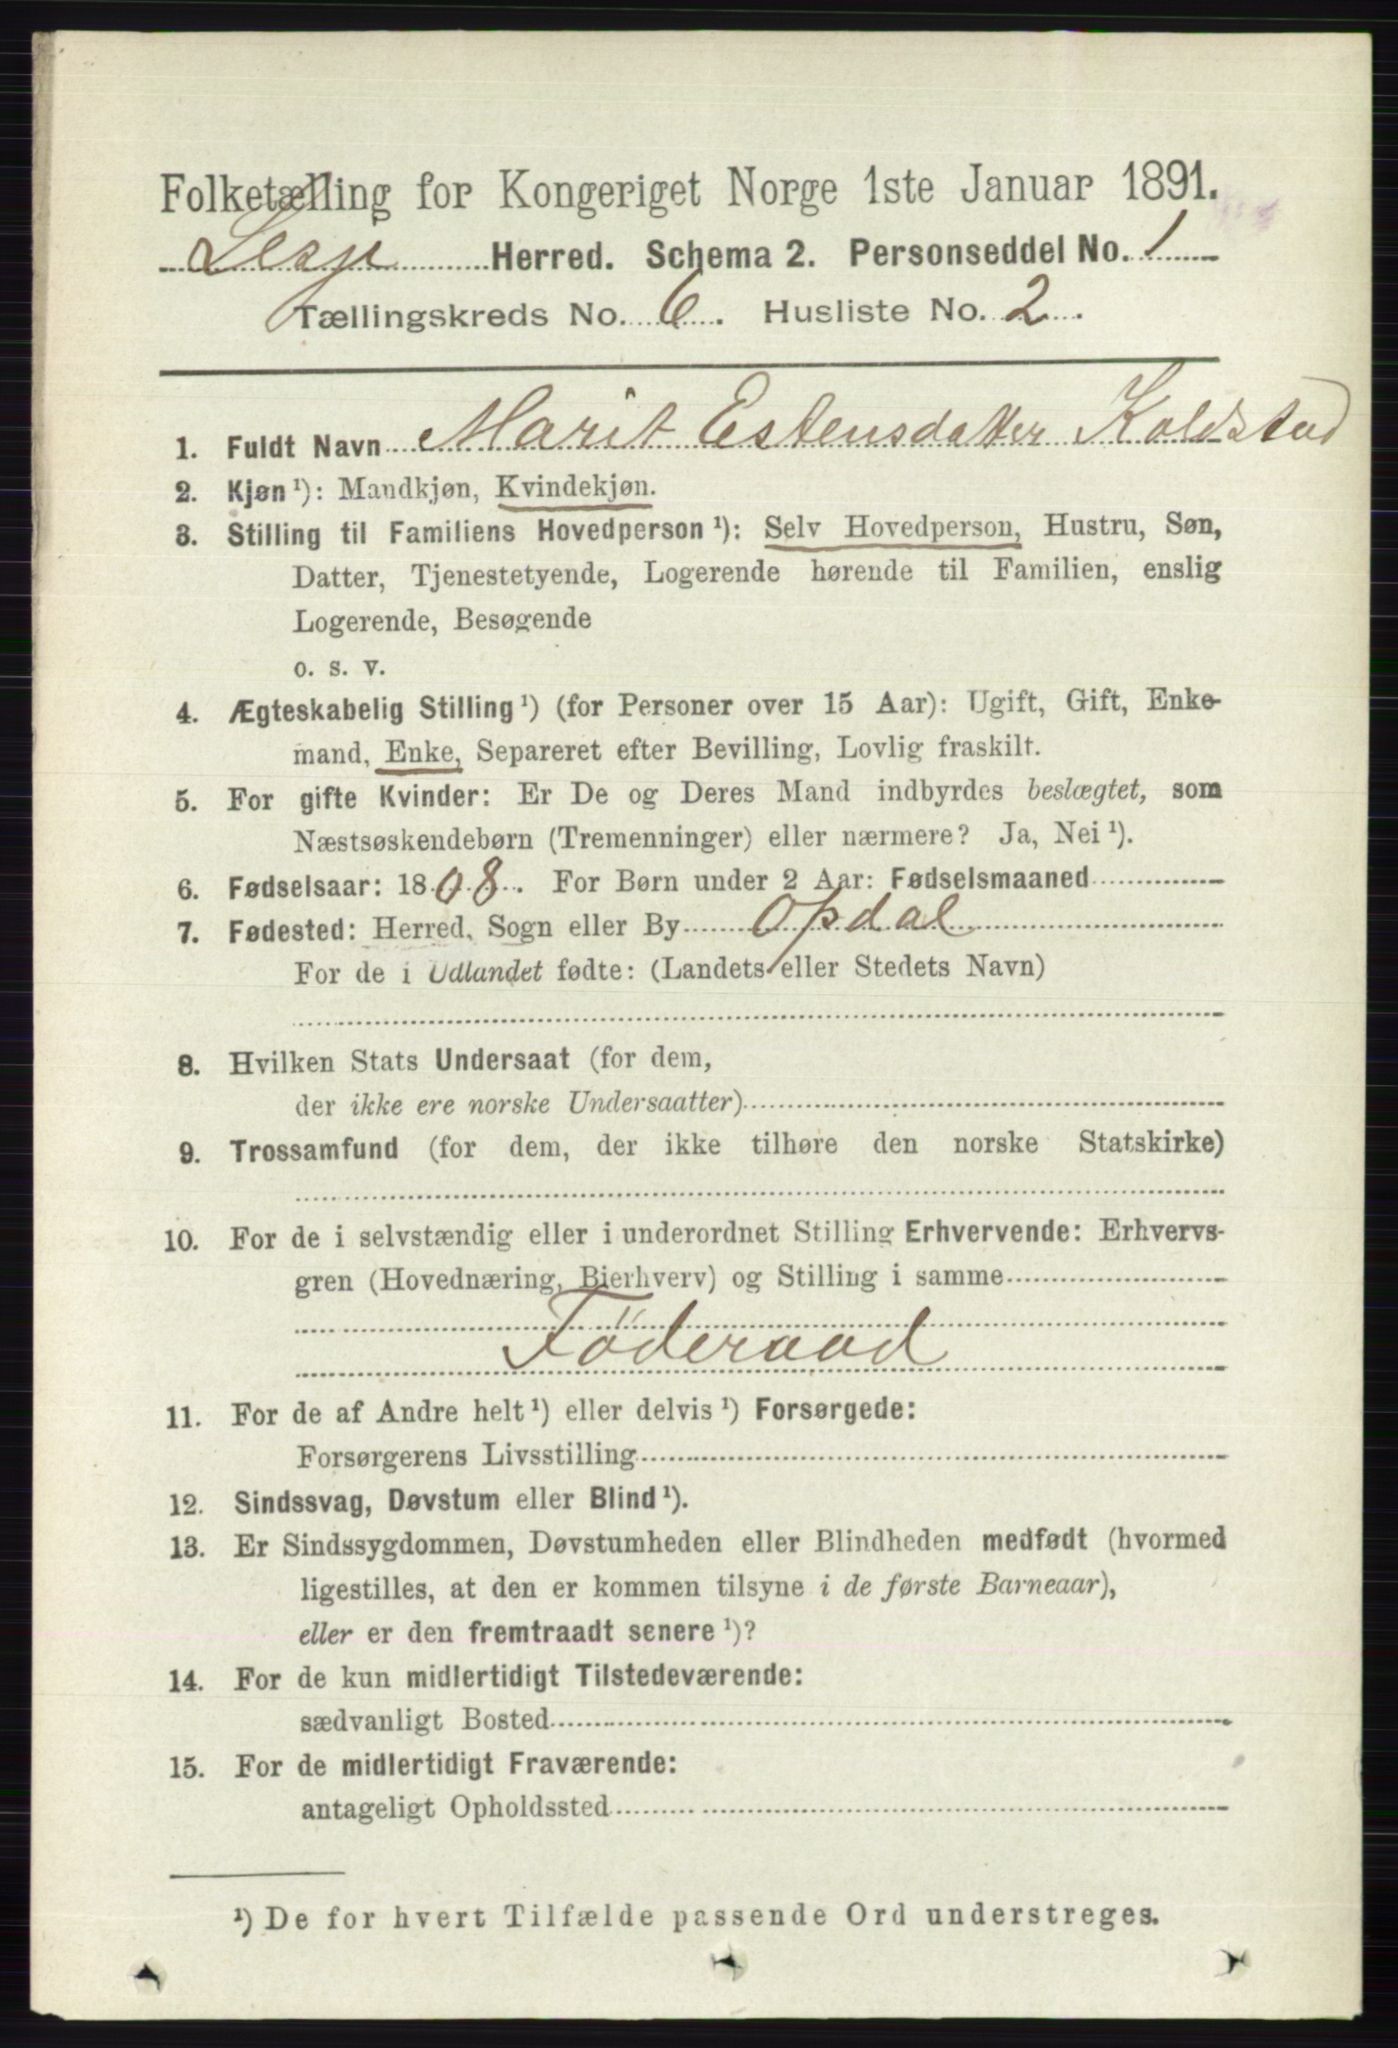 Folketælling for Kongeriget Norge 1ste Januar 1891.
Lesje Herred. Schema 2. Personseddel No. 1
Tællingskreds No. 6. Husliste No. 2.
1. Fuldt Navn Marit Estensdatter Koldstad
2. Kjøn¹): Mandkjøn, Kvindekjøn.
3. Stilling til Familiens Hovedperson¹): Selv Hovedperson, Hustru, Søn,
Datter, Tjenestetyende, Logerende hørende til Familien, enslig
Logerende, Besøgende
o. s. v.
4. Ægteskabelig Stilling¹) (for Personer over 15 Aar): Ugift, Gift, Enke-
mand, Enke, Separeret efter Bevilling, Lovlig fraskilt.
5. For gifte Kvinder: Er De og Deres Mand indbyrdes beslægtet, som
Næstsøskendebørn (Tremenninger) eller nærmere? Ja, Nei¹).
6. Fødselsaar: 1808. For Børn under 2 Aar: Fødselsmaaned
7. Fødested: Herred, Sogn eller By Opdal
For de i Udlandet fødte: (Landets eller Stedets Navn)
8. Hvilken Stats Undersaat (for dem,
der ikke ere norske Undersaatter)
9. Trossamfund (for dem, der ikke tilhøre den norske Statskirke)
10. For de i selvstændig eller i underordnet Stilling Erhvervende: Erhvervs-
gren (Hovednæring, Bierhverv) og Stilling i samme
Föderaad
11. For de af Andre helt¹) eller delvis¹) Forsørgede:
Forsørgerens Livsstilling
12. Sindssvag, Døvstum eller Blind¹).
13. Er Sindssygdommen, Døvstumheden eller Blindheden medfødt (hvormed
ligestilles, at den er kommen tilsyne i de første Barneaar),
eller er den fremtraadt senere¹)?
14. For de kun midlertidigt Tilstedeværende:
sædvanligt Bosted
15. For de midlertidigt Fraværende:
antageligt Opholdssted
¹) De for hvert Tilfælde passende Ord understreges.